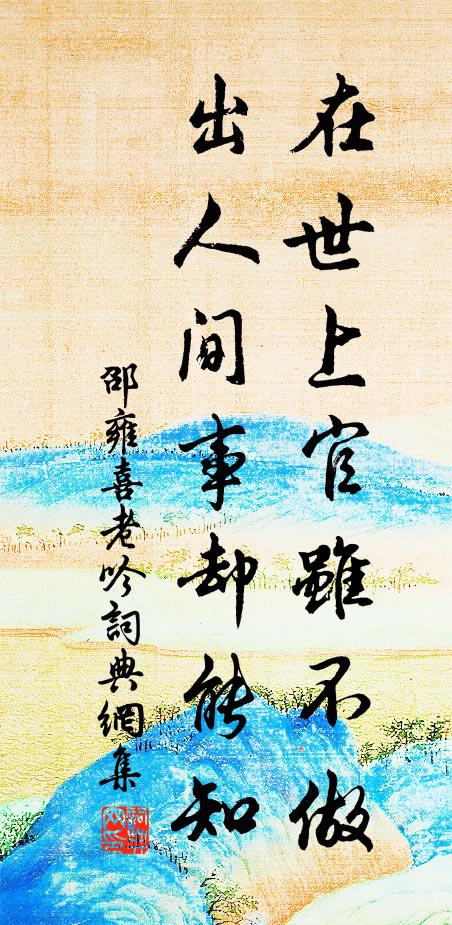 在世上官雖不做
出人間事却能知
邵雍喜老吟詞典網集